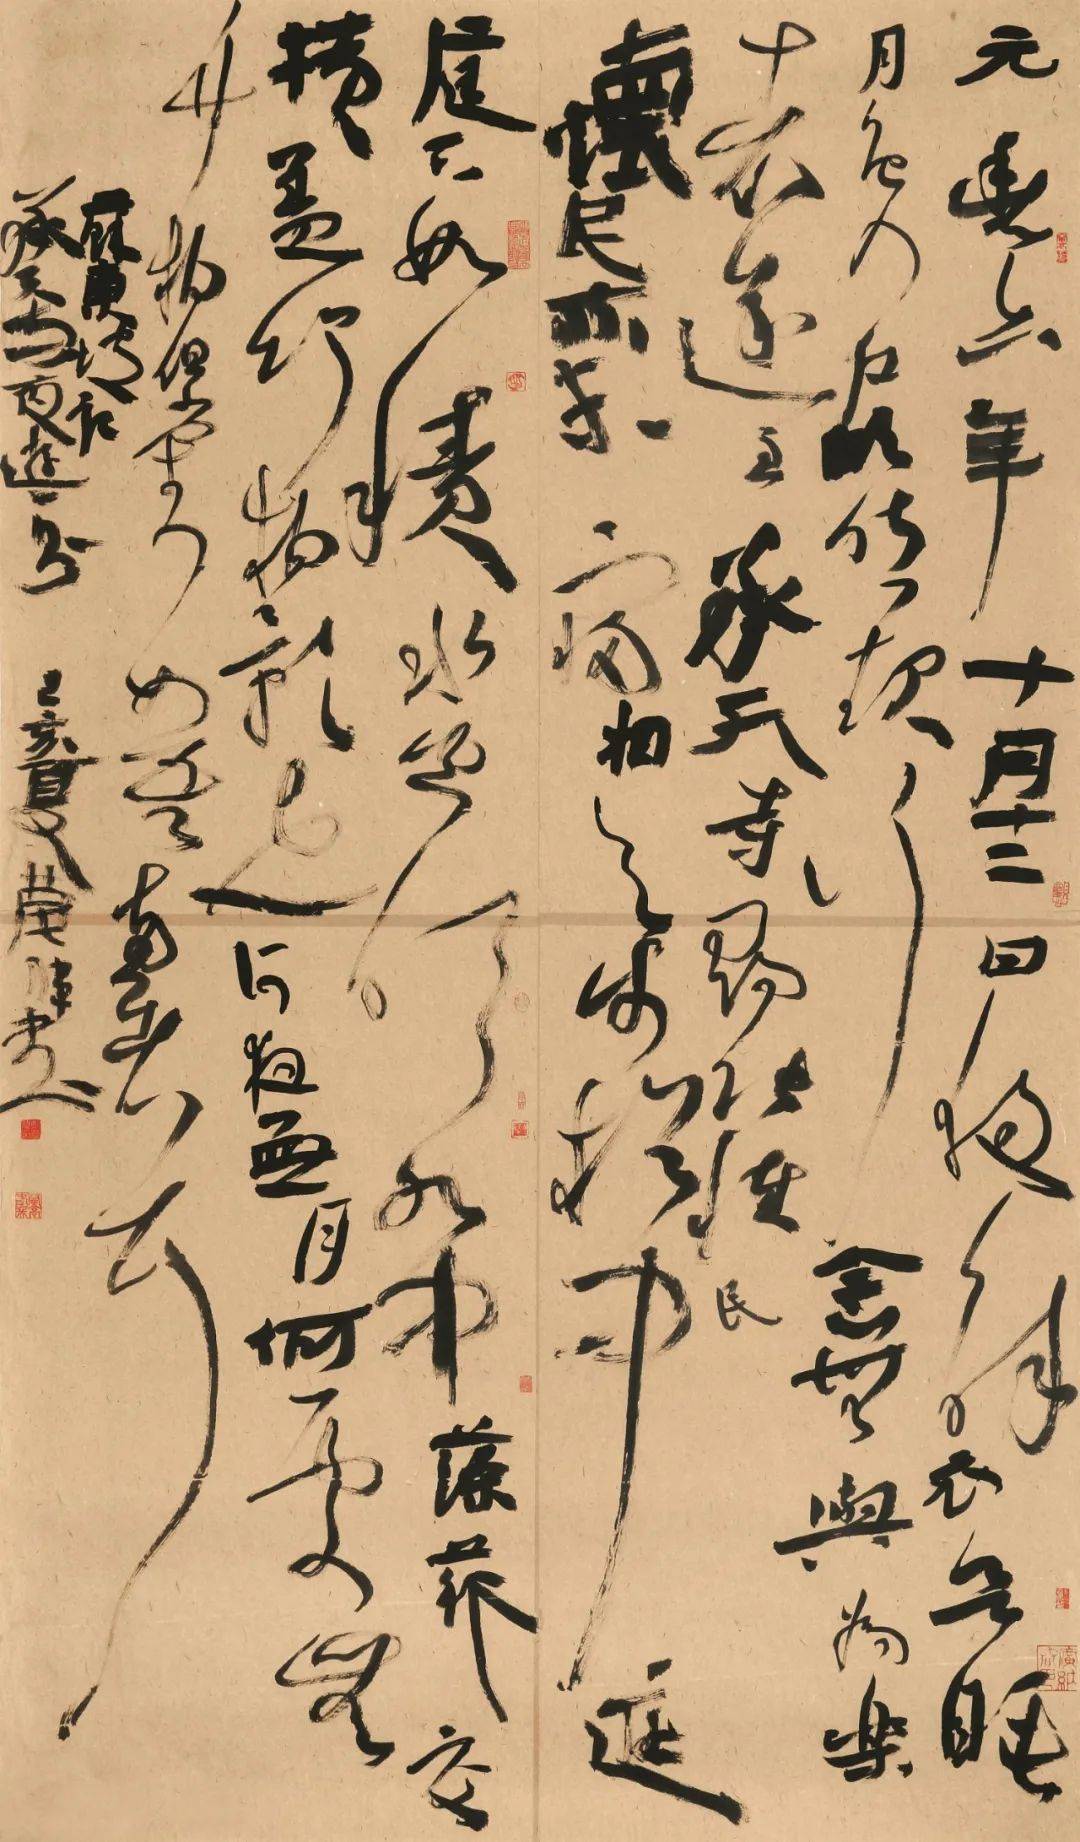 元豐六年十月十二日夜解衣欲睡
月色入戶欣然起行念無與為樂
者遂至承天寺尋張懷民
懷民亦未寢相與步於中庭
庭下如積水空明水中藻荇交
橫蓋竹柏影也何夜無月何處無
竹柏但少閑人如吾兩人者耳
蘇東坡記
承天寺夜遊
己亥夏